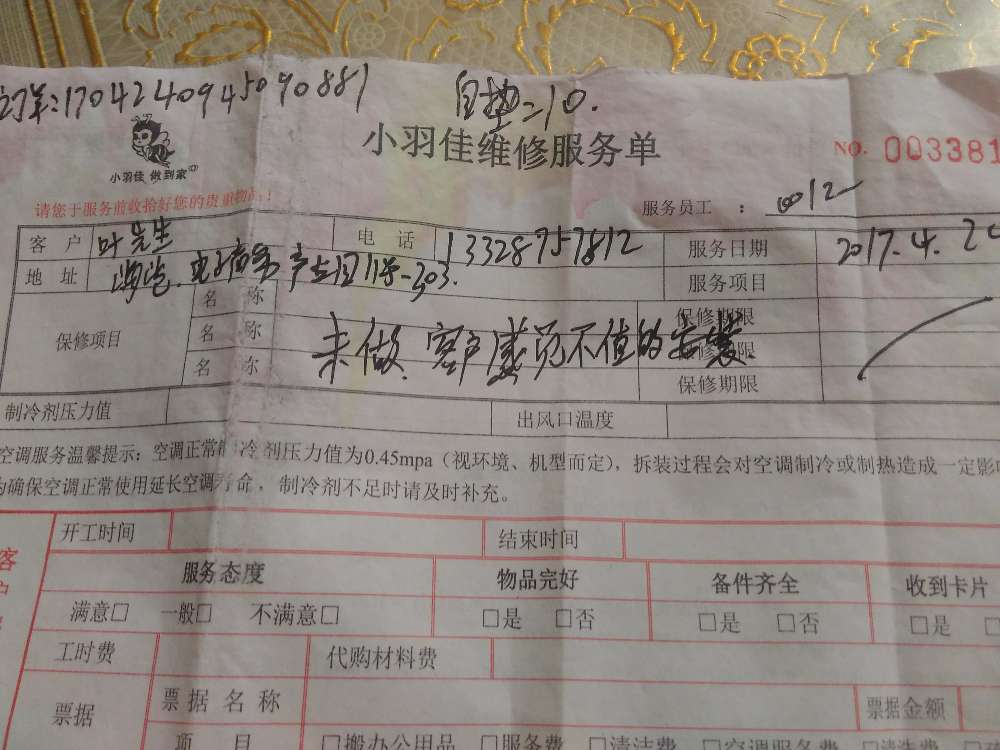 订单:1704240945090881 自垫=10.
小羽佳维修服务单 NO. 003381
小羽佳 做到家
请您于服务前收拾好您的贵重物品! 服务员工 : 0012
客 户 叶先生 电 话 13328757812 服务日期 2017.4.2
地 址 电子商务产 303. 服务项目
保修项目 名 称 保修期限
名 称 保修期限
名 称 保修期限
未做、客户感觉不值的安装、
制冷剂压力值 出风口温度
空调服务温馨提示: 空调正常制冷剂压力值为0.45mpa (视环境、机型而定), 拆装过程会对空调制冷或制热造成一定影
为确保空调正常使用延长空调寿命, 制冷剂不足时请及时补充。
开工时间 结束时间
服务态度 物品完好 备件齐全 收到卡片
满意□ 一般□ 不满意□ □是 □否 □是 □否 □是
客户
工时费 代购材料费
票据 票 据 名 称 票据金额
项 目 □搬办公用品 □服务费 □清洁费 □空调服务费 □清洗费